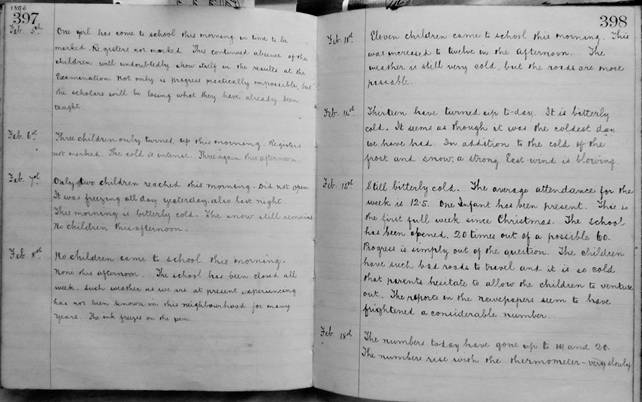 1895
397
Feb. 5th One girl has come to school this morning in time to be
marked. Registers not marked. This continued absence of the
children will undoubtedly show itself in the results at the
Examination. Not only is progress practically impossible, but
the scholars will be losing what they have already been
taught.
Feb. 6th Three children only turned up this morning. Registers
not marked. The cold is intense. Three again this afternoon.
Feb. 7th Only two children reached this morning. Did not open.
It was freezing all day yesterday, also last night.
This morning is bitterly cold. The snow still remains.
No children this afternoon.
Feb. 8th No children came to school this morning.
None this afternoon. The school has been closed all
week. Such weather as we are at present experiencing
has not been known in this neighbourhood for many
years. The ink freezes on the pen.
398
Feb. Eleven children came to school this morning. This
was increased to twelve in the afternoon. The
weather is still very cold, but the roads are more
passable.
Feb. Thirteen have turned up to-day. It is bitterly
cold. It seems as though it was the coldest day
we have had. In addition to the cold of the
frost and snow, a strong East wind is blowing.
Feb. Still bitterly cold. The average attendance for the
week is 12.5. One Infant has been present. This is
the first full week since Christmas. The school
has been opened 20 times out of a possible 60.
Progress is simply out of the question. The children
have such bad roads to travel and it is so cold
that parents hesitate to allow the children to venture
out. The reports in the newspapers seem to have
frightened a considerable number.
Feb. 18th The numbers today have gone up to and 20.
The numbers rise with the thermometer - very slowly